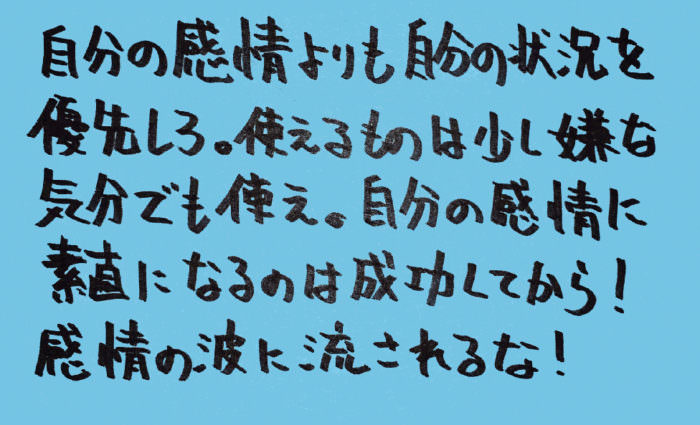 自分の感情よりも自分の状況を
優先しろ。使えるものは少し嫌な
気分でも使え。自分の感情に
素直になるのは成功してから!
感情の波に流されるな!